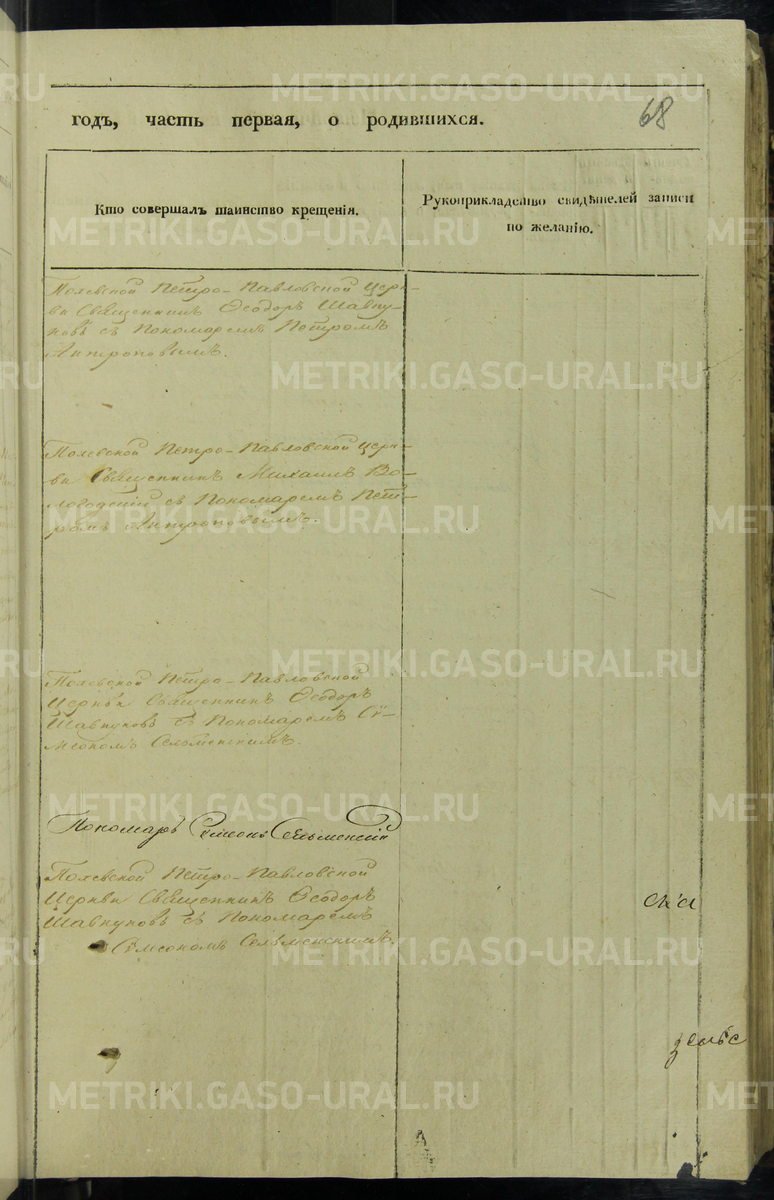 68
годъ, часть первая, о родившихся.
Кто совершалъ таинство крещенія.
Рукоприкладство свидѣтелей записи
по желанію.
Полевской Петро-Павловской Церк-
ви Священникъ Ѳеодоръ Шавку-
новъ съ Пономаремъ Петромъ
Антроповымъ.
Полевской Петро-Павловской Церк-
ви Священникъ Михаилъ Во-
логодскій съ Пономаремъ Пет-
ромъ Антроповымъ.
Полевской Петро-Павловской
Церкви Священникъ Ѳеодоръ
Шавкуновъ съ Пономаремъ Сѵ-
меономъ Сельменскимъ.
Пономарь Симеонъ Сельменскій
Полевской Петро-Павловской
Церкви Священникъ Ѳеодоръ
Шавкуновъ съ Пономаремъ
Сѵмеономъ Сельменскимъ.
METRIKI.GASO-URAL.RU